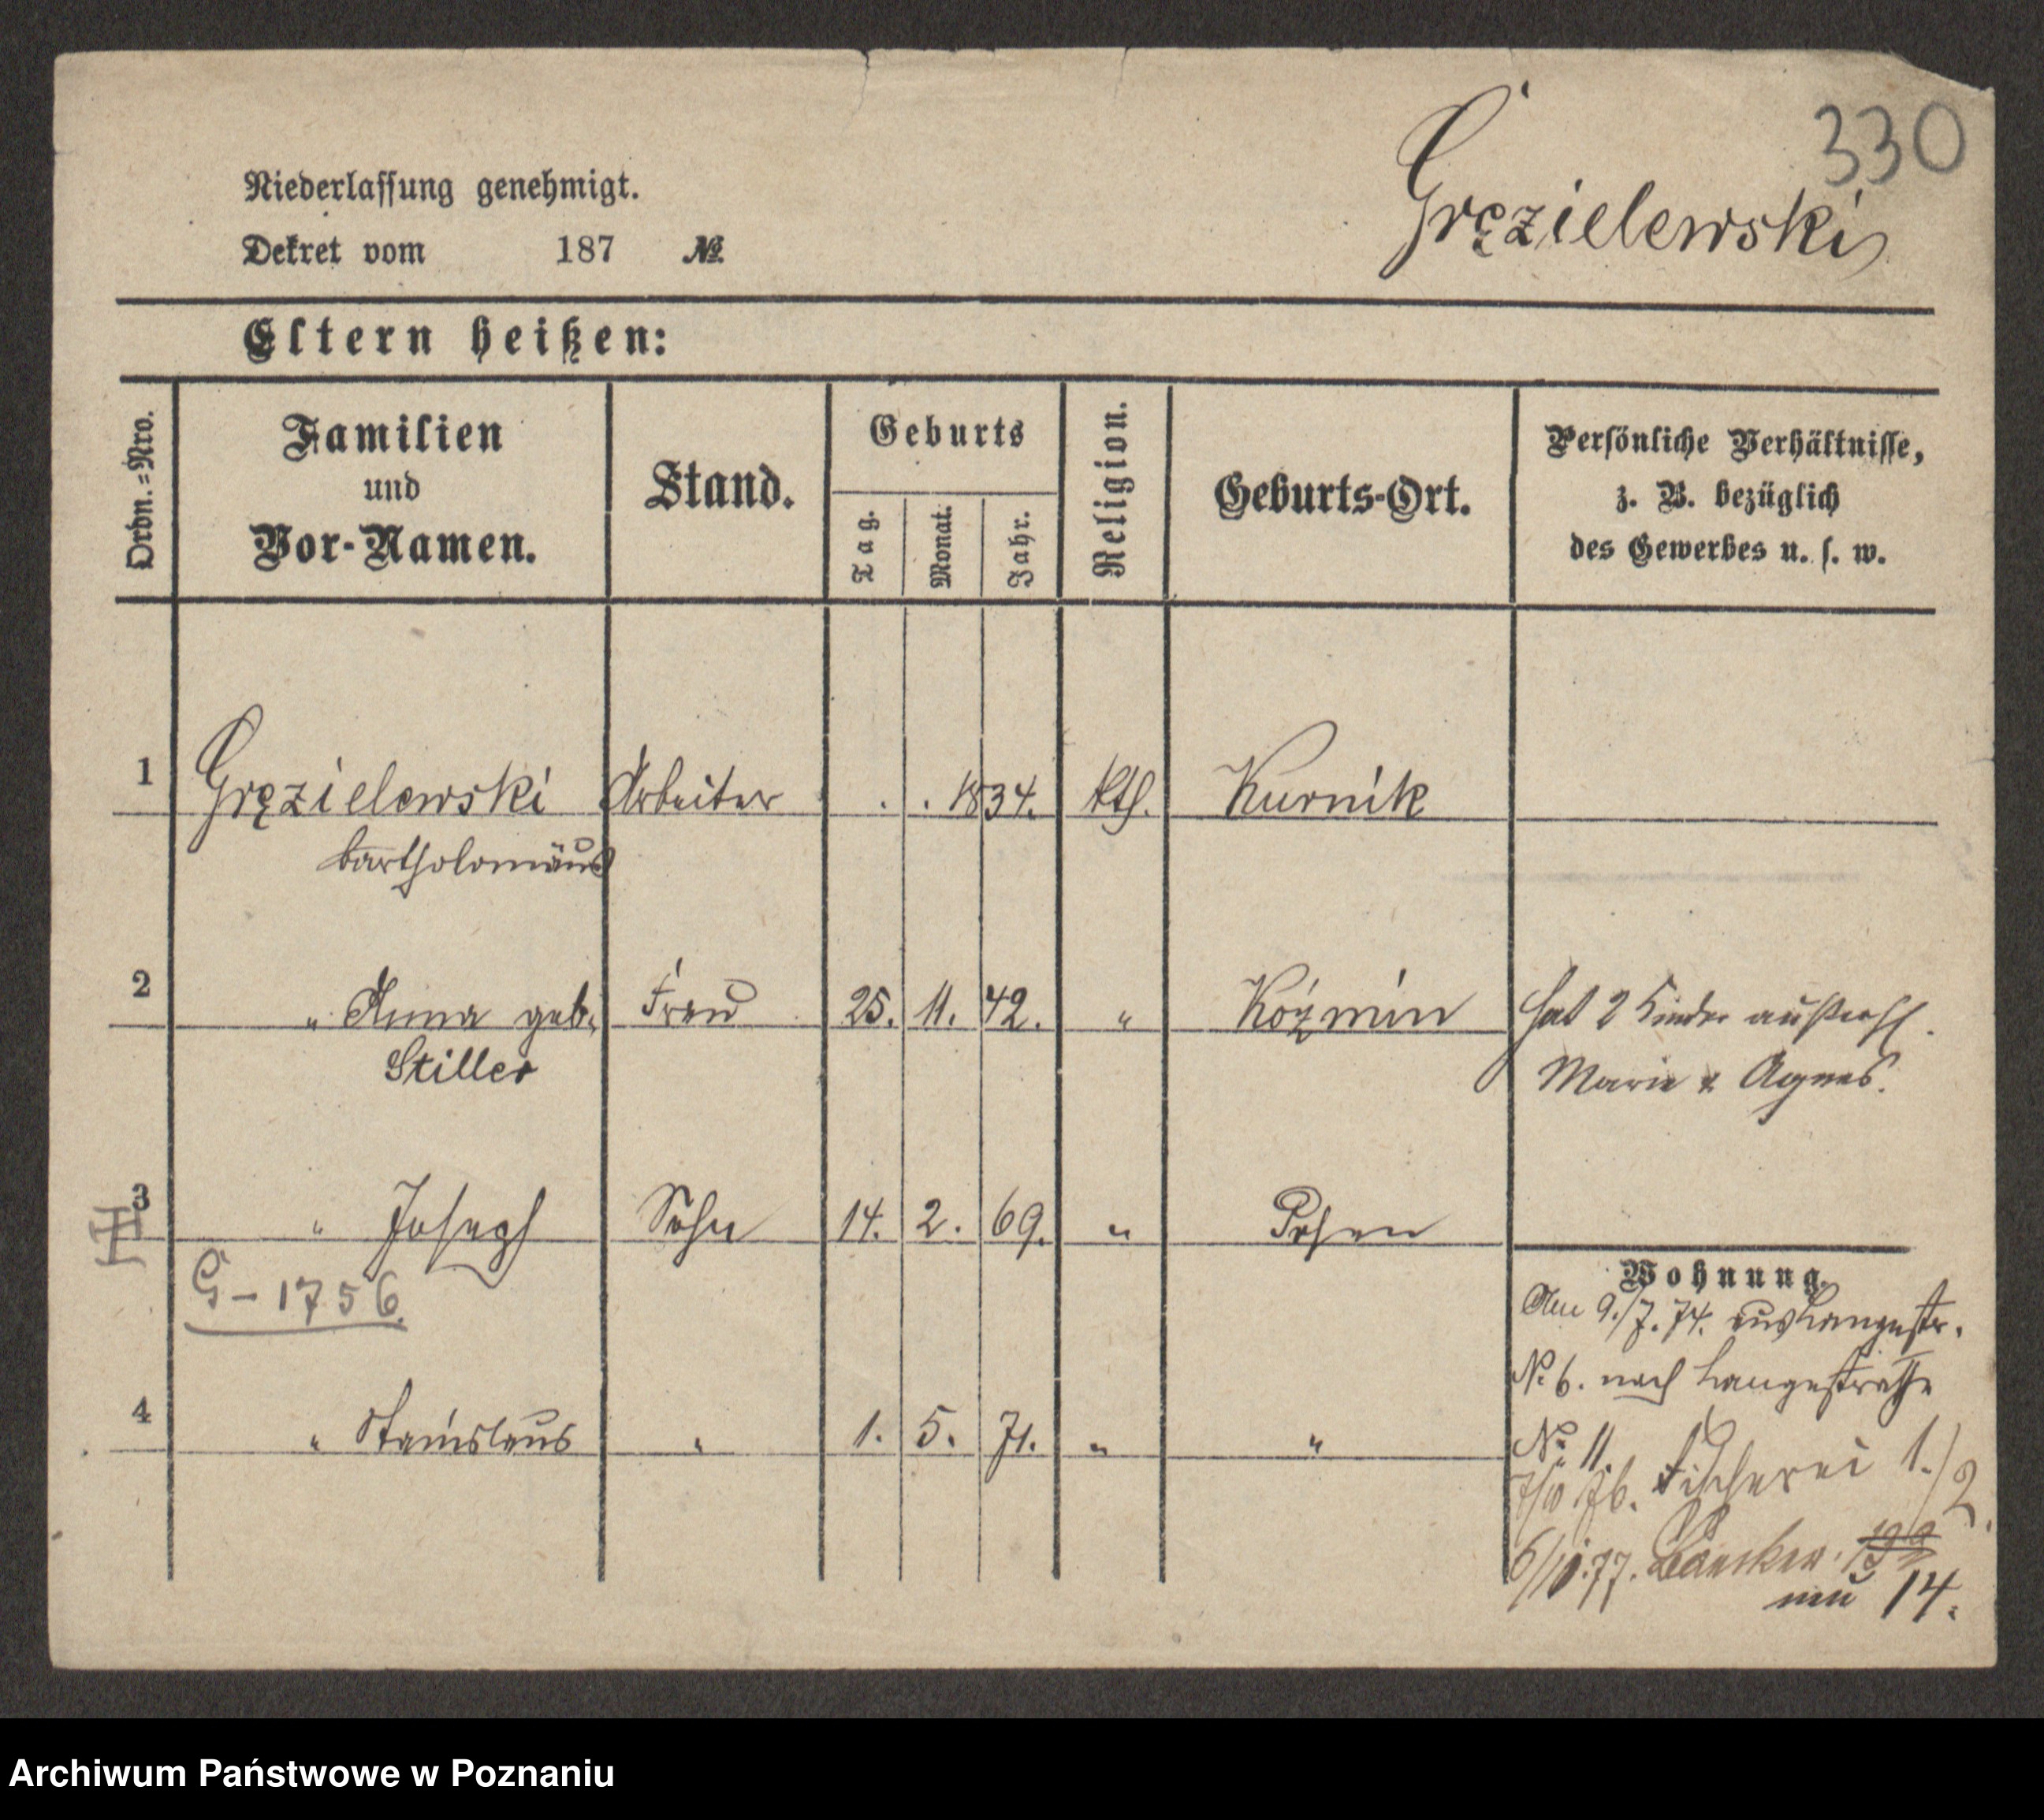 330
Gręzielewski
Niederlassung genehmigt.
Dekret vom 187 №
Eltern heißen:
Ordn.=Nro.
Familien
und
Vor-Namen.
Stand.
Geburts
Tag.
Monat.
Jahr.
Religion.
Geburts-Ort.
Persönliche Verhältnisse,
z. B. bezüglich
des Gewerbes u. s. w.
1 Gręzielewski Arbeiter . . 1834. kth. Kurnik
Bartholomäus
2 " Anna geb. Frau 25. 11. 42. " Koźmin hat 2 Kinder außerehl.
Stiller Marie & Agnes.
3 " Joseph Sohn 14. 2. 69. " Posen
G-1756.
4 " Stanislaus " 1. 5. 71. " "
Wohnung.
Am 9./7. 74. aus Langestr.
No 6. nach Langestraße
No 11.
76. Fischerei 1./2.
6/10.77.
neu 14.
Archiwum Państwowe w Poznaniu